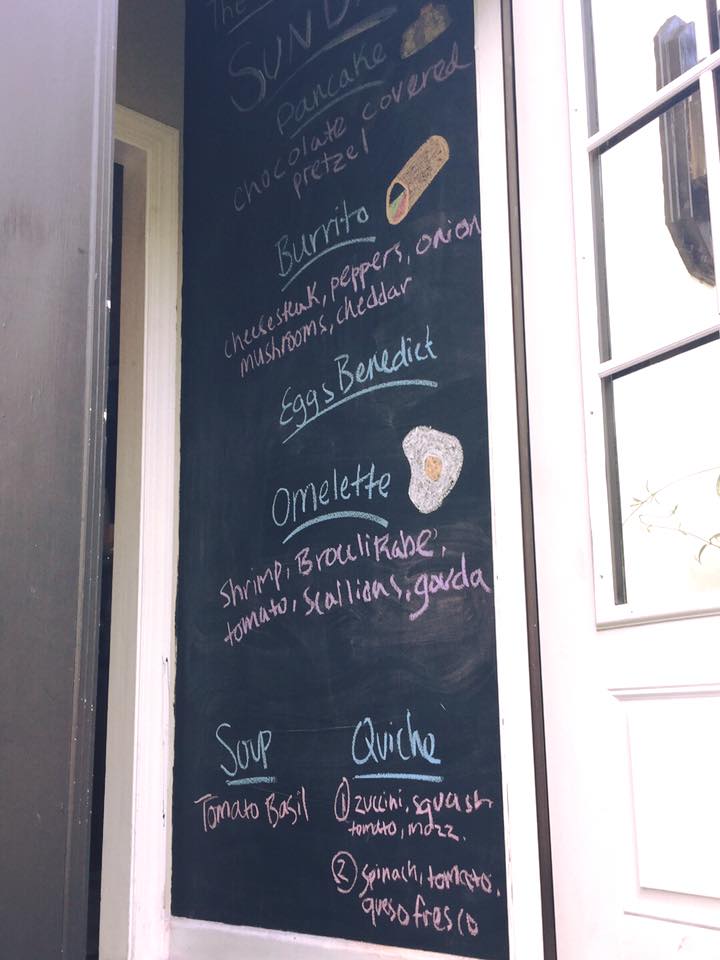 The
SUNDA
Pancake
chocolate covered
pretzel
Burrito
cheesesteak, peppers, onion
mushrooms, cheddar
Eggs Benedict
Omelette
shrimp, Brouli Rabe,
tomato, scallions, gouda
Soup
Tomato Basil
Quiche
① zuccini, squash
tomato, mozz.
② spinach, tomato,
queso fresco